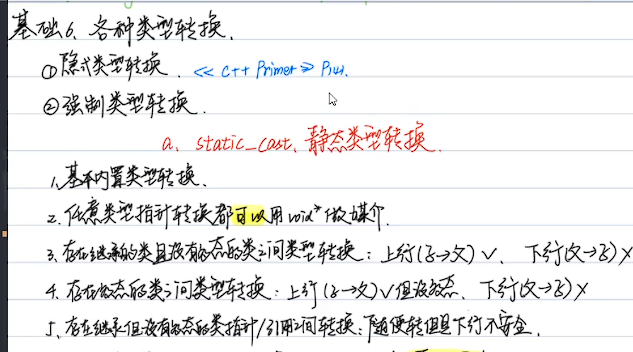 基础6. 各种类型转换.
①隐式类型转换. 《C++ Primer》P141.
②强制类型转换.
a. static_cast、静态类型转换.
1. 基本内置类型转换.
2. 任意类型指针转换都可以用void*做媒介.
3. 存在继承的类且没有多态的类之间类型转换：上行(子→父)√、下行(父→子)×
4. 存在多态的类之间类型转换：上行(子→父)√但没多态、下行(父→子)×
5. 存在继承但没有多态的类指针/引用之间转换：随便转但是下行不安全.